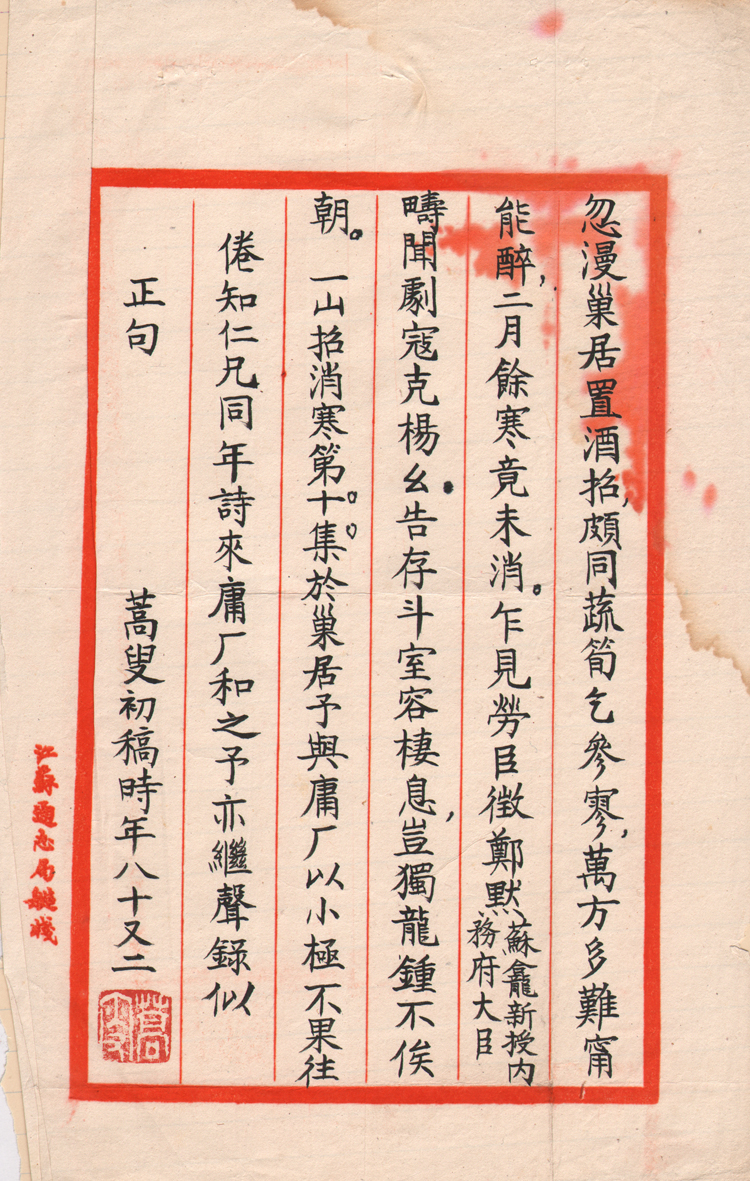 忽漫巢居置酒招，頗同蔬筍乞參寥，萬方多難甯
能醉，二月餘寒竟未消。乍見勞臣徵鄭默，蘇龕新授内務府大臣
疇聞劇寇克楊幺。告存斗室容棲息，豈獨龍鍾不俟
朝。一山招消寒第十集於巢居予與庸厂以小極不果往
倦知仁兄同年詩來庸厂和之予亦繼聲錄似
正句
蒿叟初稿時年八十又二
蒿叟
江蘇通志局擬箋